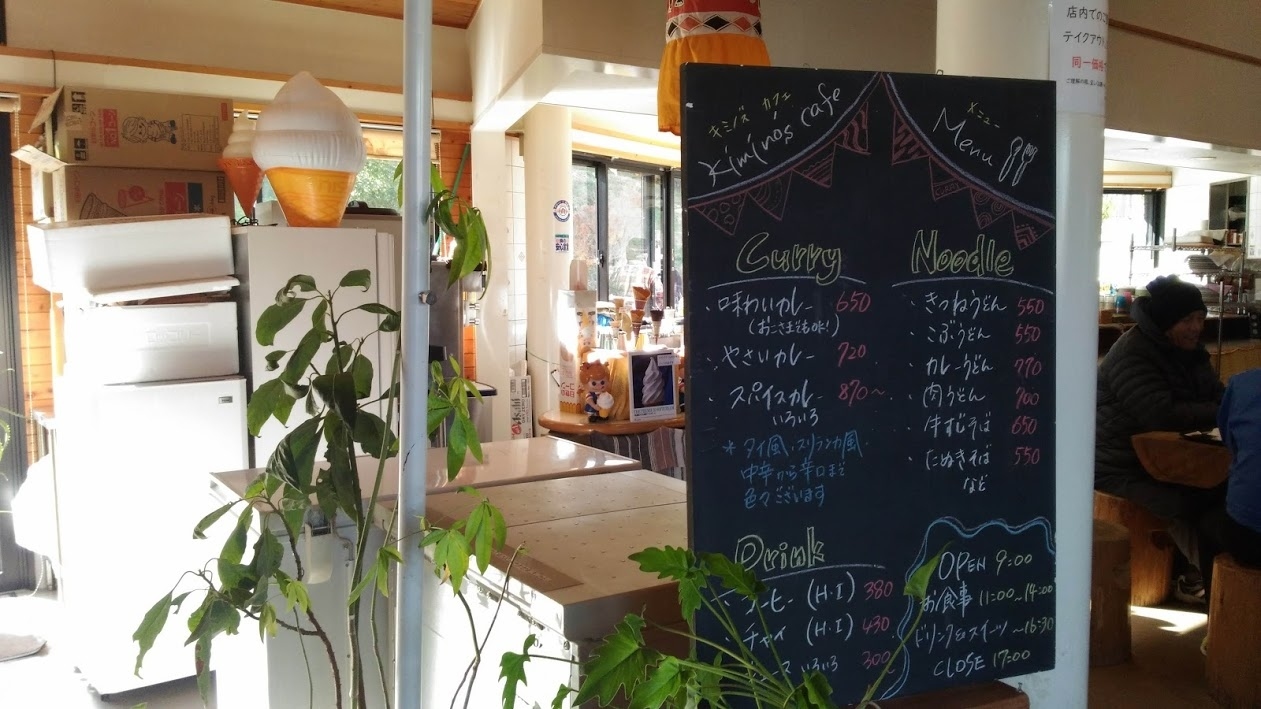 店内での
テイクアウ
同一価格
キミノズ カフェ
Kimino's cafe
メニュー
Menu
Curry
・味わいカレー 650
(おこさまでもOK!)
・やさいカレー 720
・スパイスカレー 870〜
いろいろ
*タイ風、スリランカ風
中辛から辛口まで
色々ございます
Noodle
・きつねうどん 550
・こぶうどん 550
・カレーうどん 770
・肉うどん 700
・牛すじそば 650
・たぬきそば 550
など
Drink
ーヒー (H・I) 380
・チャイ (H・I) 430
ス いろいろ 300
OPEN 9:00
お食事 11:00〜14:00
ドリンク&スイーツ 〜16:30
CLOSE 17:00